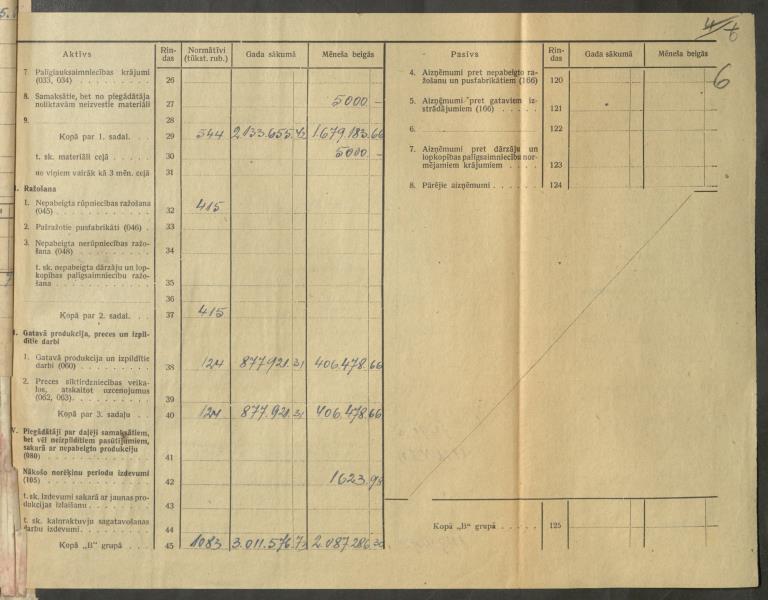 5.
6
Aktīvs
Rin-
das
Normātīvi
(tūkst. rub.)
Gada sākumā
Mēneša beigās
7. Palīgiauksaimniecības krājumi
(033, 034)
26
8. Samaksātie, bet no piegādātāja
noliktavām neizvestie materiāli
27
5000.-
9.
28
Kopā par 1. sadaļ.
29 544 2.133.655.43 1.679.183.66
t. sk. materiāli ceļā
30 5000.-
no viņiem vairāk kā 3 mēn. ceļā
31
Ražošana
1. Nepabeigta rūpniecības ražošana
(045)
32 415
2. Pašražotie pusfabrikāti (046)
33
3. Nepabeigta nerūpniecības ražo-
šana (048)
34
t. sk. nepabeigta dārzāju un lop-
kopības palīgsaimniecību ražo-
šana
35
36
Kopā par 2. sadaļ.
37 415
Gatavā produkcija, preces un izpil-
dītie darbi
1. Gatavā produkcija un izpildītie
darbi (060)
38 124 877.921.31 406.478.66
2. Preces sīktirdzniecības veika-
los, atskaitot uzcenojumus
(062, 063)
39
Kopā par 3. sadaļu
40 124 877.921.31 406.478.66
V. Piegādātāji par daļēji samaksātiem,
bet vēl neizpildītiem pasūtījumiem,
sakarā ar nepabeigto produkciju
(080)
41
Nākošo norēķinu periodu izdevumi
(105)
42 1623.98
t. sk. izdevumi sakarā ar jaunas pro-
dukcijas izlaišanu
43
t. sk. kalnraktuvju sagatavošanas
darbu izdevumi
44
Kopā „B" grupā
45 1083 3.011.576.74 2.087.286.30
Pasīvs
Rin-
das
Gada sākumā
Mēneša beigās
4. Aizņēmumi pret nepabeigto ra-
žošanu un pusfabrikātiem (166)
120
5. Aizņēmumi pret gataviem iz-
strādājumiem (166)
121
6.
122
7. Aizņēmumi pret dārzāju un
lopkopības palīgsaimniecību nor-
mējamiem krājumiem
123
8. Pārējie aizņēmumi
124
Kopā „B" grupā
125